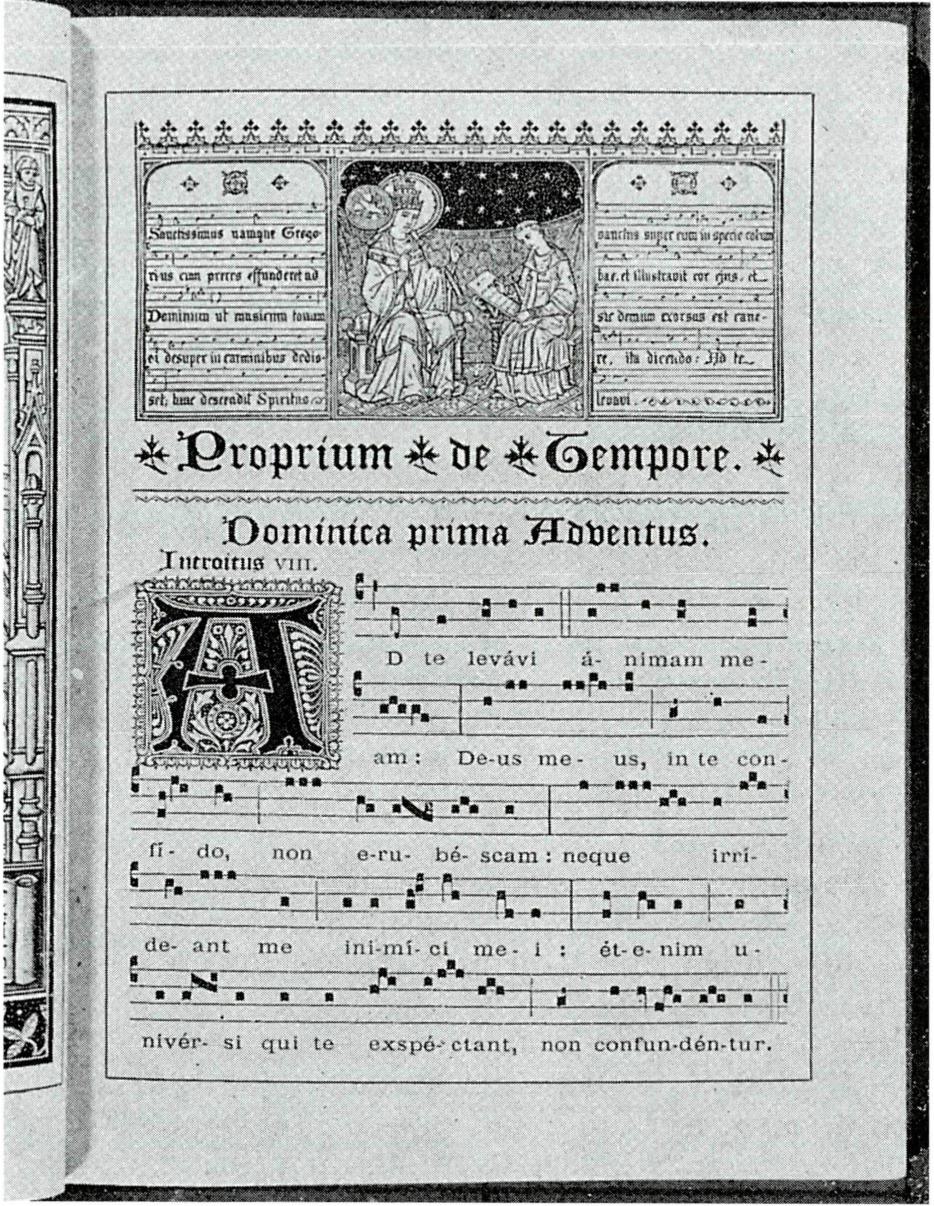 Sanctissimus namque Grego-
rius cum preces effunderet ad
Dominum ut musicum tonum
ei desuper in carminibus dedis-
set, tunc descendit Spiritus
sanctus super eum in specie colum
bae, et illustravit cor ejus, et
sic demum exorsus est cane-
re, ita dicendo: Ad te
levavi.
Proprium de Tempore.
Dominica prima Adventus.
Introitus VIII.
AD te levávi á- nimam me-
am: De-us me- us, in te con-
fí- do, non e-ru- bé- scam: neque irrí-
de- ant me ini-mí- ci me- i : ét-e- nim u-
nivér- si qui te exspé- ctant, non confun-dén-tur.